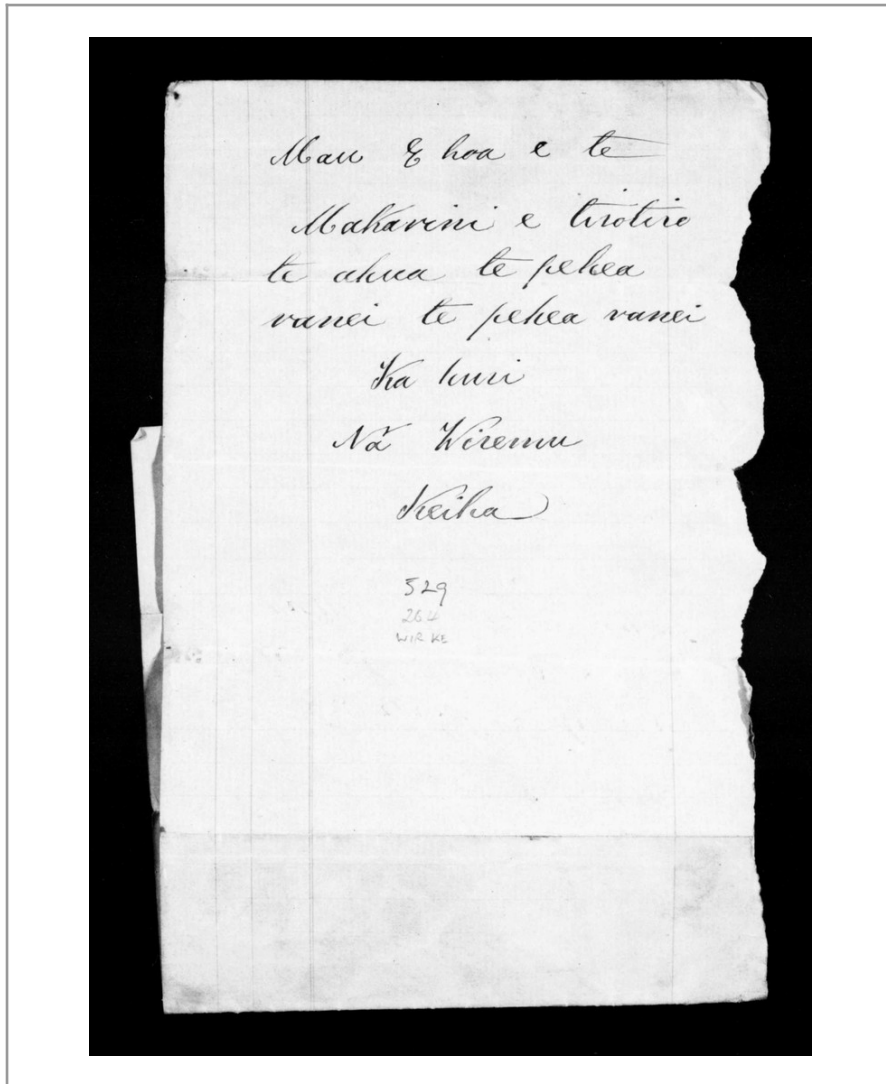 Mau E hoa e te
Makarini e tirotiro
te ahua te pehea
ranei te pehea ranei
Ka huri
Nā Wiremu
Keiha
329
264
WIR KE